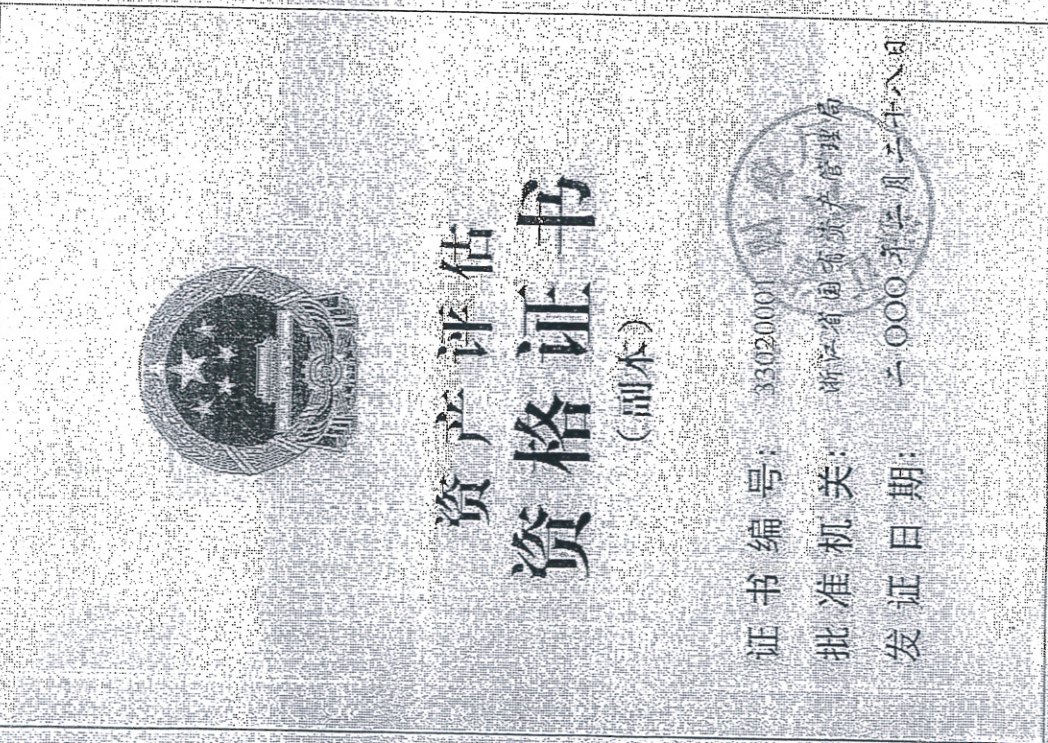 资产评估
资格证书
（副本）
证书编号：33020001
批准机关：浙江省国有资产管理局
发证日期：二000年二月二十八日